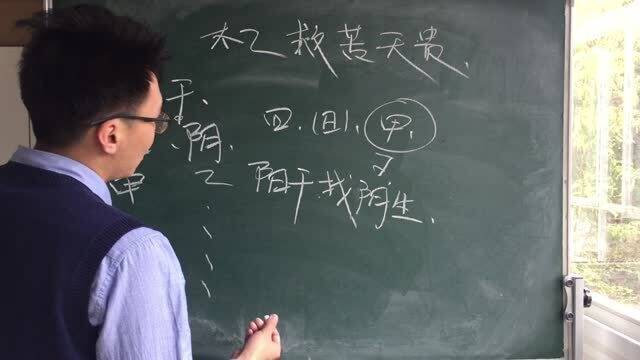 木乙救苦天贵、
干、
四、(日)、甲、
阴、
阴干找阴生、
甲 乙